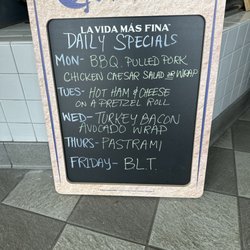 LA VIDA MÁS FINA
DAILY SPECIALS
MON- BBQ. PULLED PORK
CHICKEN CAESAR SALAD OR WRAP
TUES- HOT HAM & CHEESE
ON A PRETZEL ROLL
WED- TURKEY BACON
AVOCADO WRAP
THURS- PASTRAMI
FRIDAY- BLT.